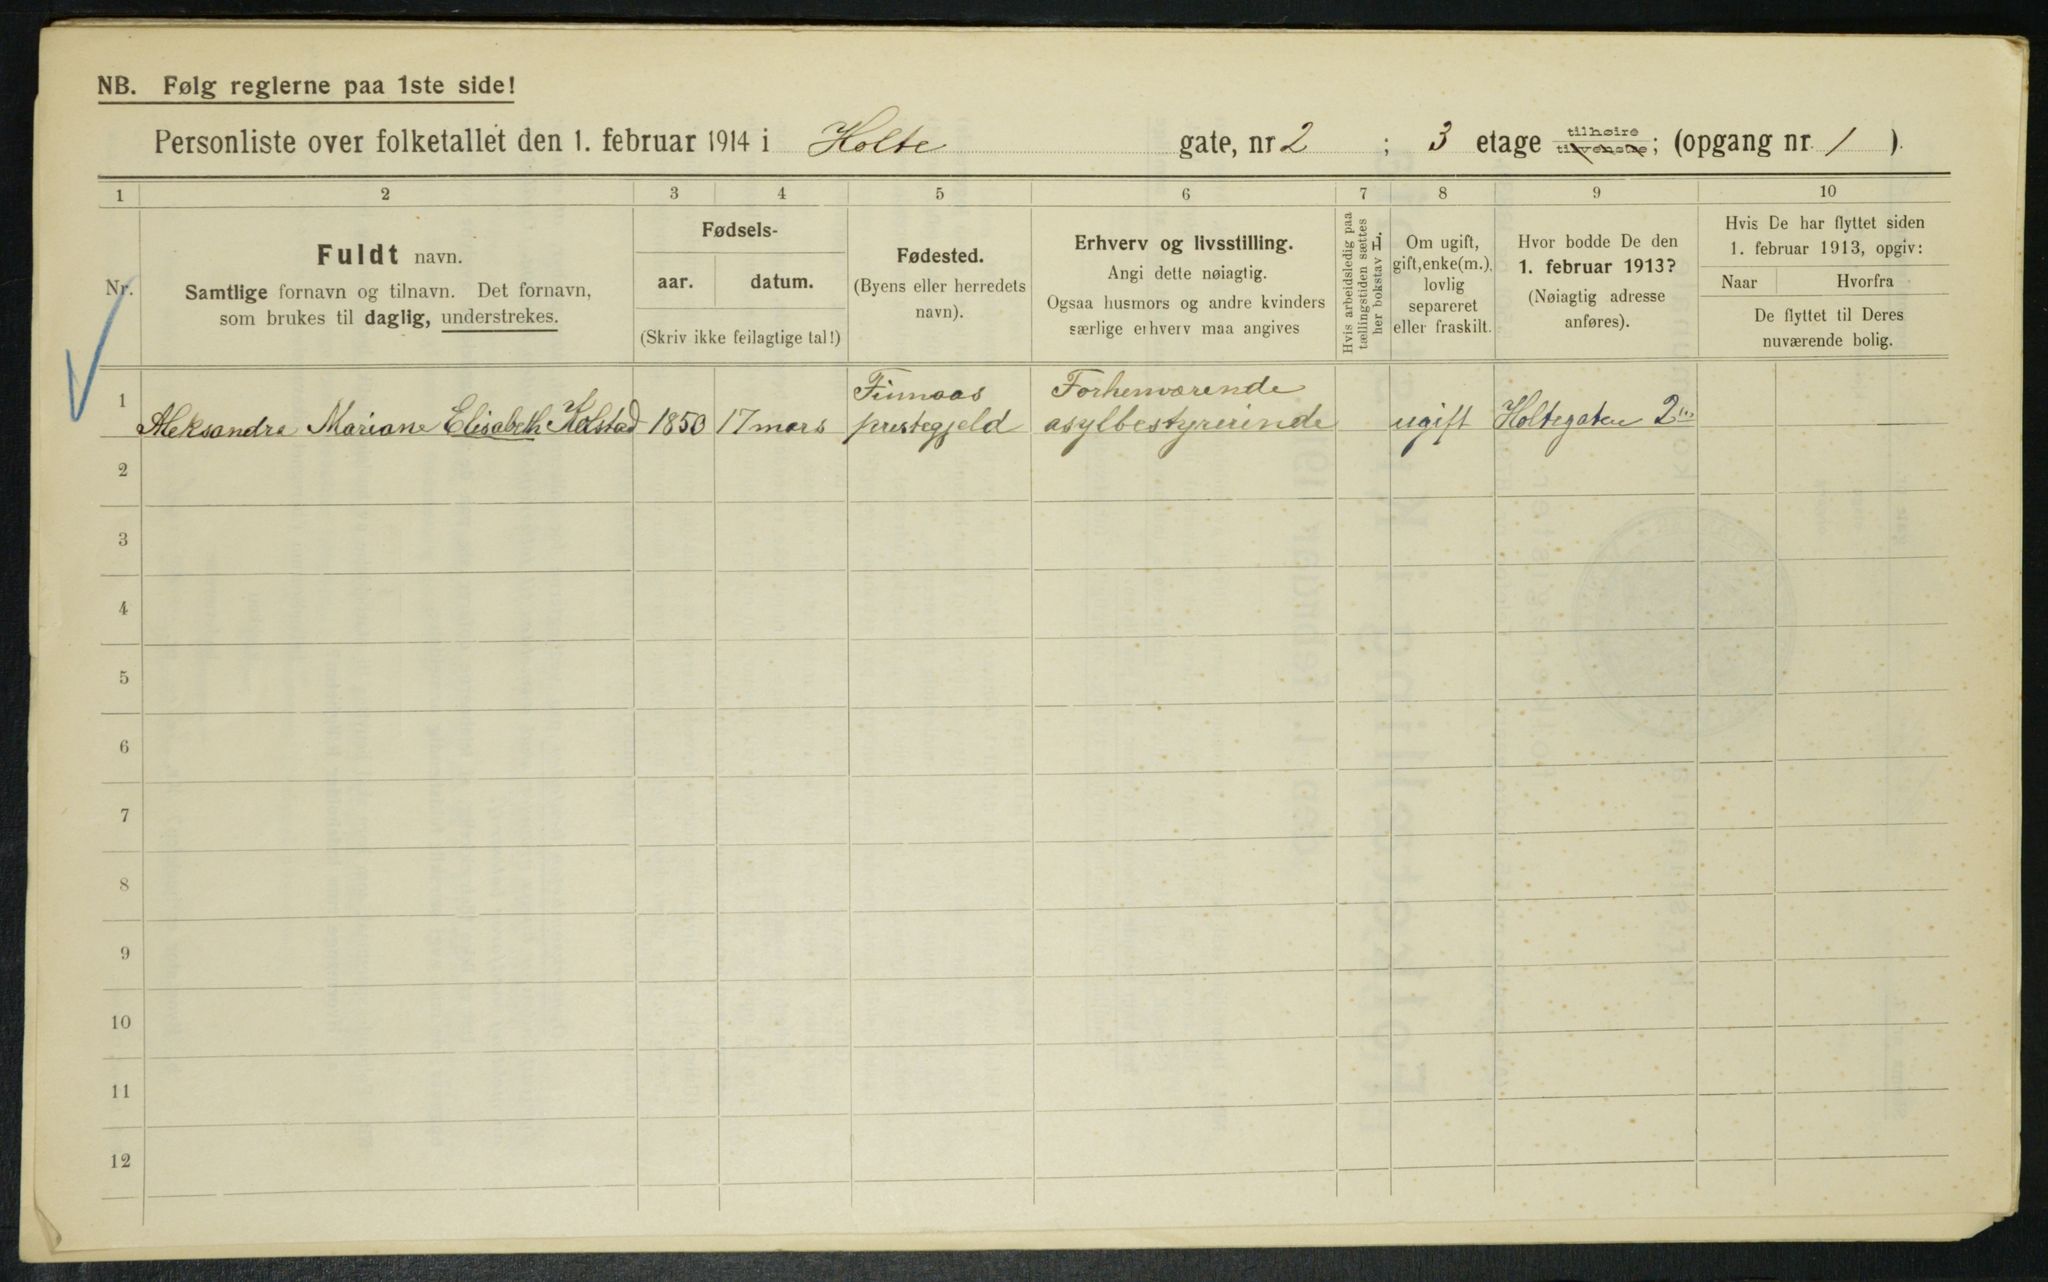 NB. Følg reglerne paa 1ste side!
Personliste over folketallet den 1. februar 1914 i Holte gate, nr. 2 ; 3 etage tilhøire tilvenstre; (opgang nr. 1 ).
1 2 3 4 5 6 7 8 9 10
Nr.
Fuldt navn.
Samtlige fornavn og tilnavn. Det fornavn,
som brukes til daglig, understrekes.
Fødsels-
aar. datum.
(Skriv ikke feilagtige tal!)
Fødested.
(Byens eller herredets
navn).
Erhverv og livsstilling.
Angi dette nøiagtig.
Ogsaa husmors og andre kvinders
særlige erhverv maa angives
Hvis arbeidsledig paa
tællingstiden sættes
her bokstav L.
Om ugift,
gift, enke(m.),
lovlig
separeret
eller fraskilt.
Hvor bodde De den
1. februar 1913?
(Nøiagtig adresse
anføres).
Hvis De har flyttet siden
1. februar 1913, opgiv:
Naar Hvorfra
De flyttet til Deres
nuværende bolig.
1 Aleksandra Mariane Elisabeth Kolstad 1850 17 mars Finnaas prestegjeld Forhenværende asylbestyrerinde ugift Holtegaten 2
2
3
4
5
6
7
8
9
10
11
12